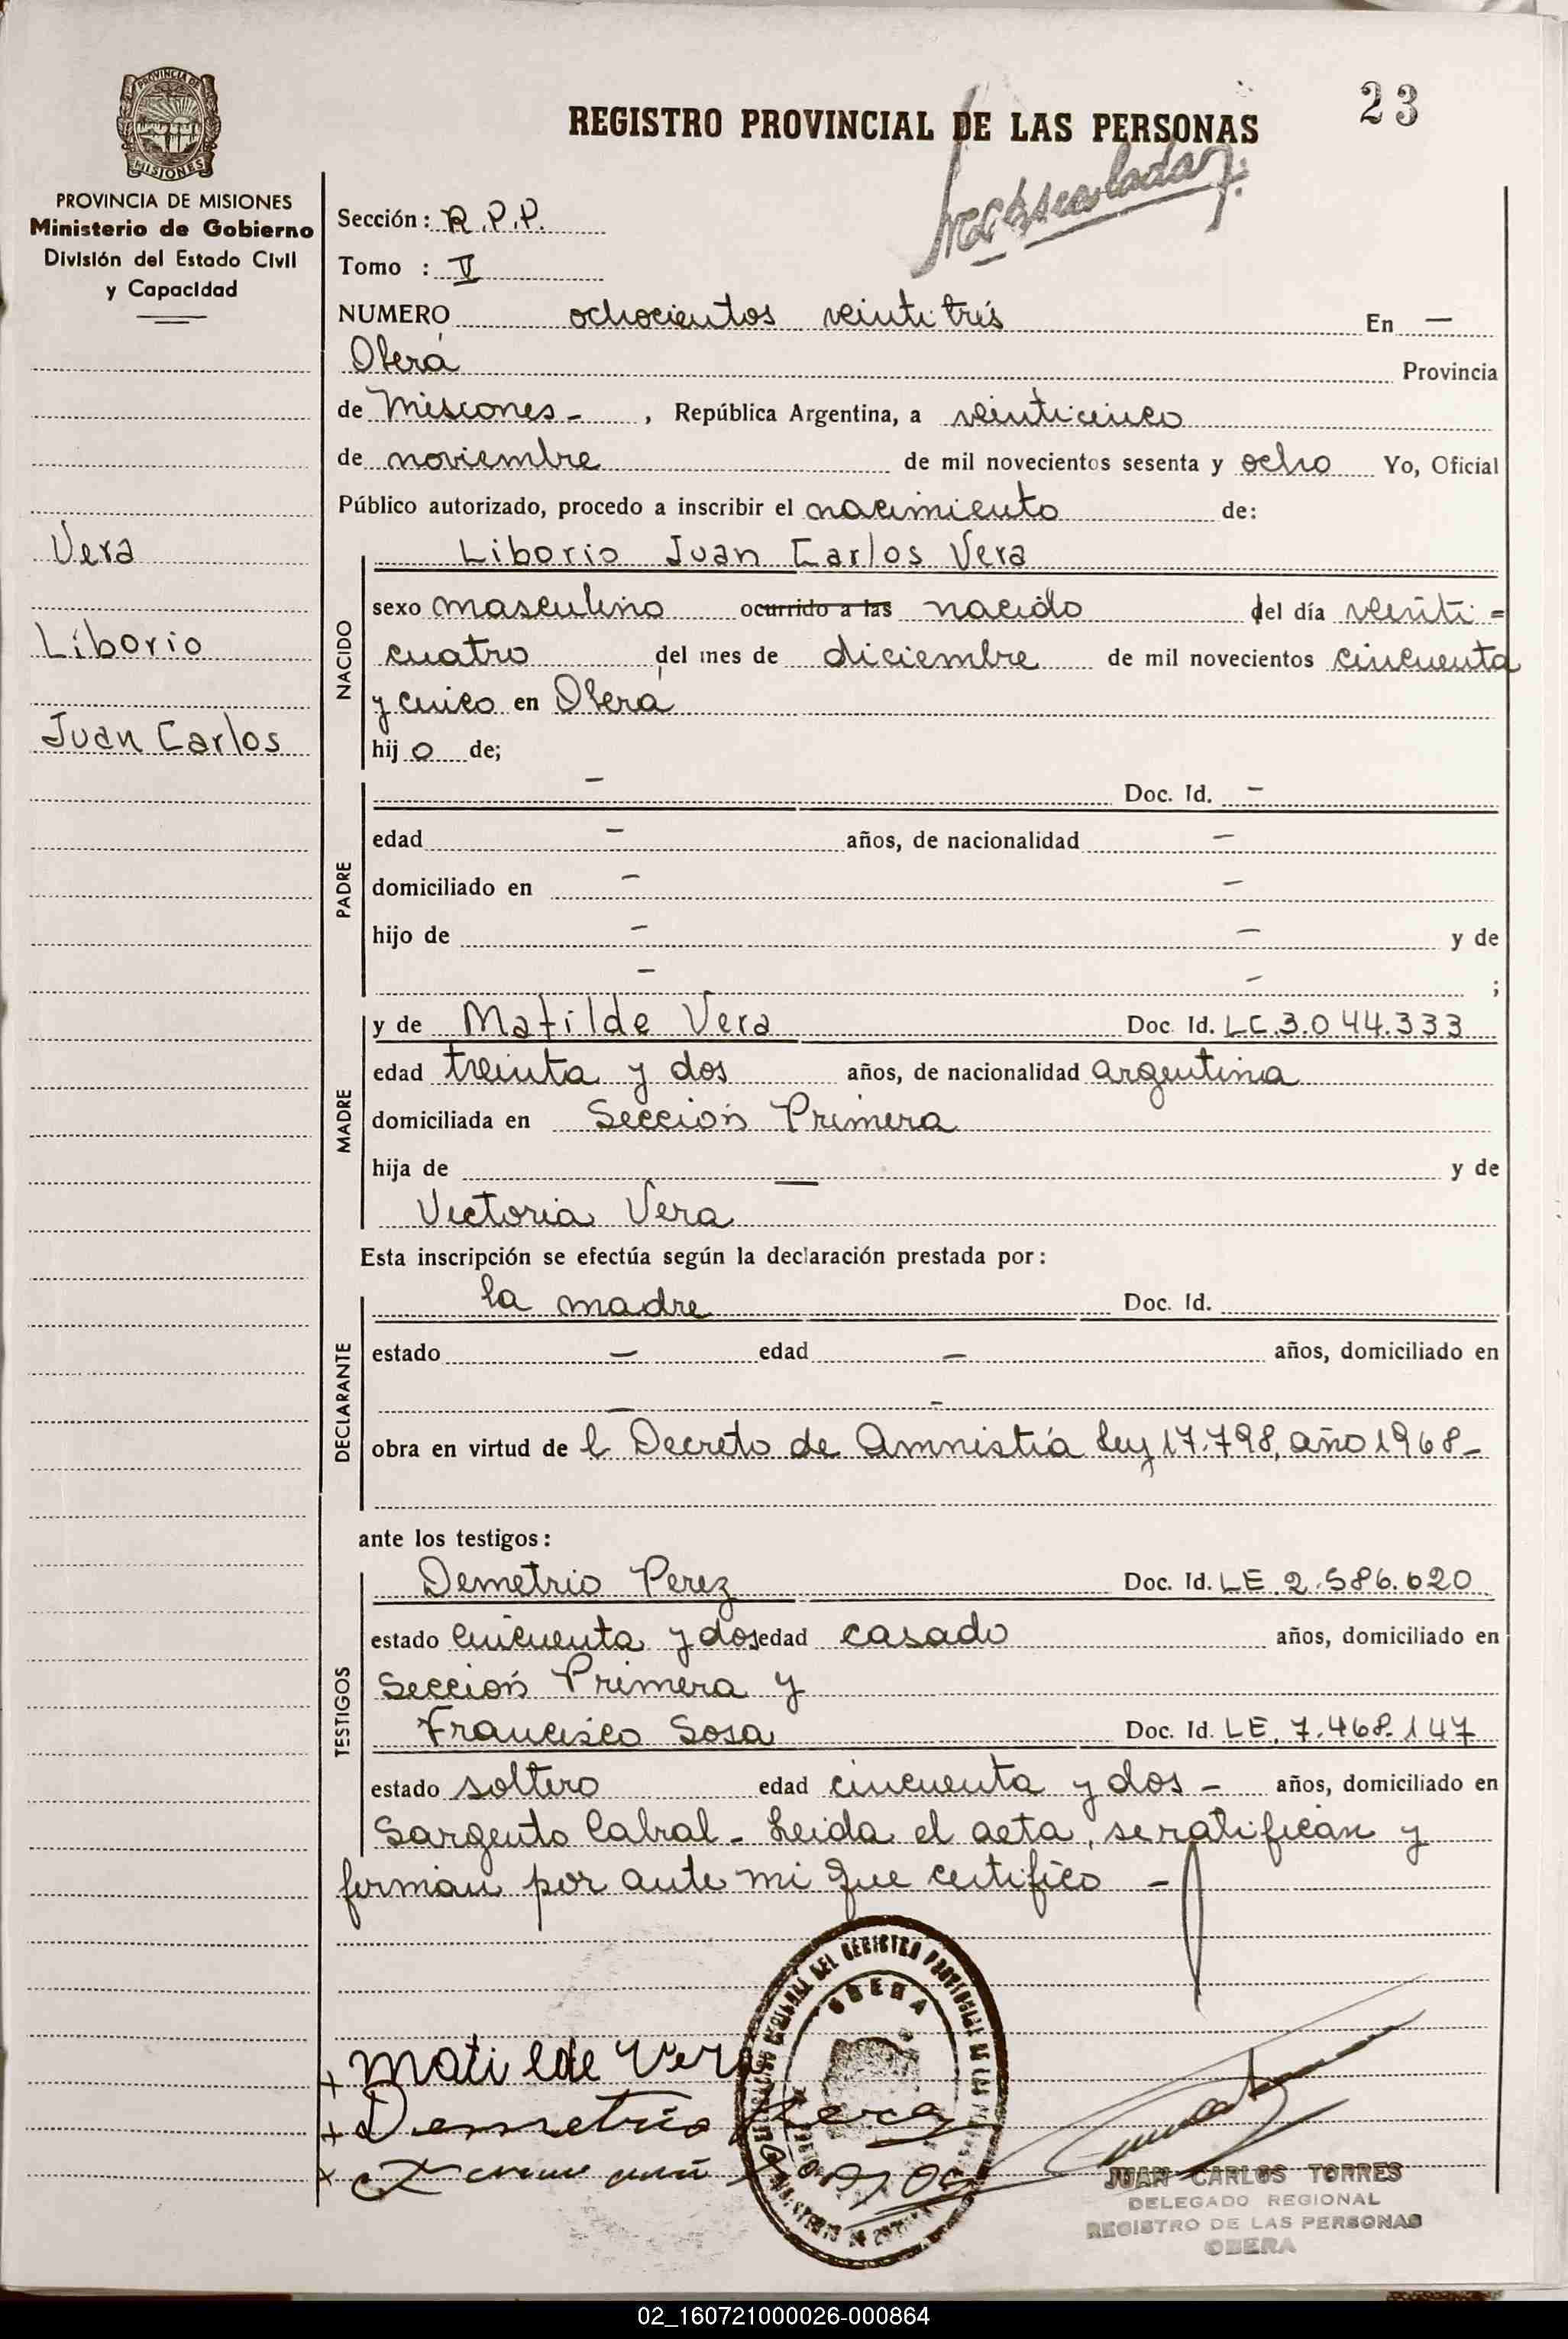 PROVINCIA DE MISIONES
PROVINCIA DE MISIONES
Ministerio de Gobierno
División del Estado Civil
y Capacidad
Vera
Liborio
Juan Carlos
23
REGISTRO PROVINCIAL DE LAS PERSONAS
Sección: R.P.P.
Tomo : II
NUMERO ochocientos veinti trés En —
Oberá Provincia
de Misiones - , República Argentina, a veinticinco
de noviembre de mil novecientos sesenta y ocho Yo, Oficial
Público autorizado, procedo a inscribir el nacimiento de:
NACIDO
Liborio Juan Carlos Vera
sexo masculino ocurrido a las nacido del día veinti =
cuatro del mes de diciembre de mil novecientos cincuenta
y cinco en Oberá
hij o de;
PADRE
— Doc. Id. —
edad — años, de nacionalidad —
domiciliado en — —
hijo de — — y de
— — ;
MADRE
y de Matilde Vera Doc. Id. LC.3.044.333
edad treinta y dos años, de nacionalidad argentina
domiciliada en Sección Primera
hija de — y de
Victoria Vera
Esta inscripción se efectúa según la declaración prestada por:
DECLARANTE
la madre Doc. Id.
estado — edad — años, domiciliado en
— -
obra en virtud de l Decreto de Amnistía Ley 17.798, año 1968-
ante los testigos:
TESTIGOS
Demetrio Perez Doc. Id. LE. 2.586.620
estado cincuenta y dos edad casado años, domiciliado en
Sección Primera y
Francisco Sosa Doc. Id. LE. 7.468.147
estado soltero edad cincuenta y dos - años, domiciliado en
Sargento Cabral - Leida el acta, se ratifican y
firman por ante mi que certifico -
+ Matilde Vera
+ Demetrio Perez
x
OBERA
JUAN CARLOS TORRES
DELEGADO REGIONAL
REGISTRO DE LAS PERSONAS
OBERA
02_160721000026-000864